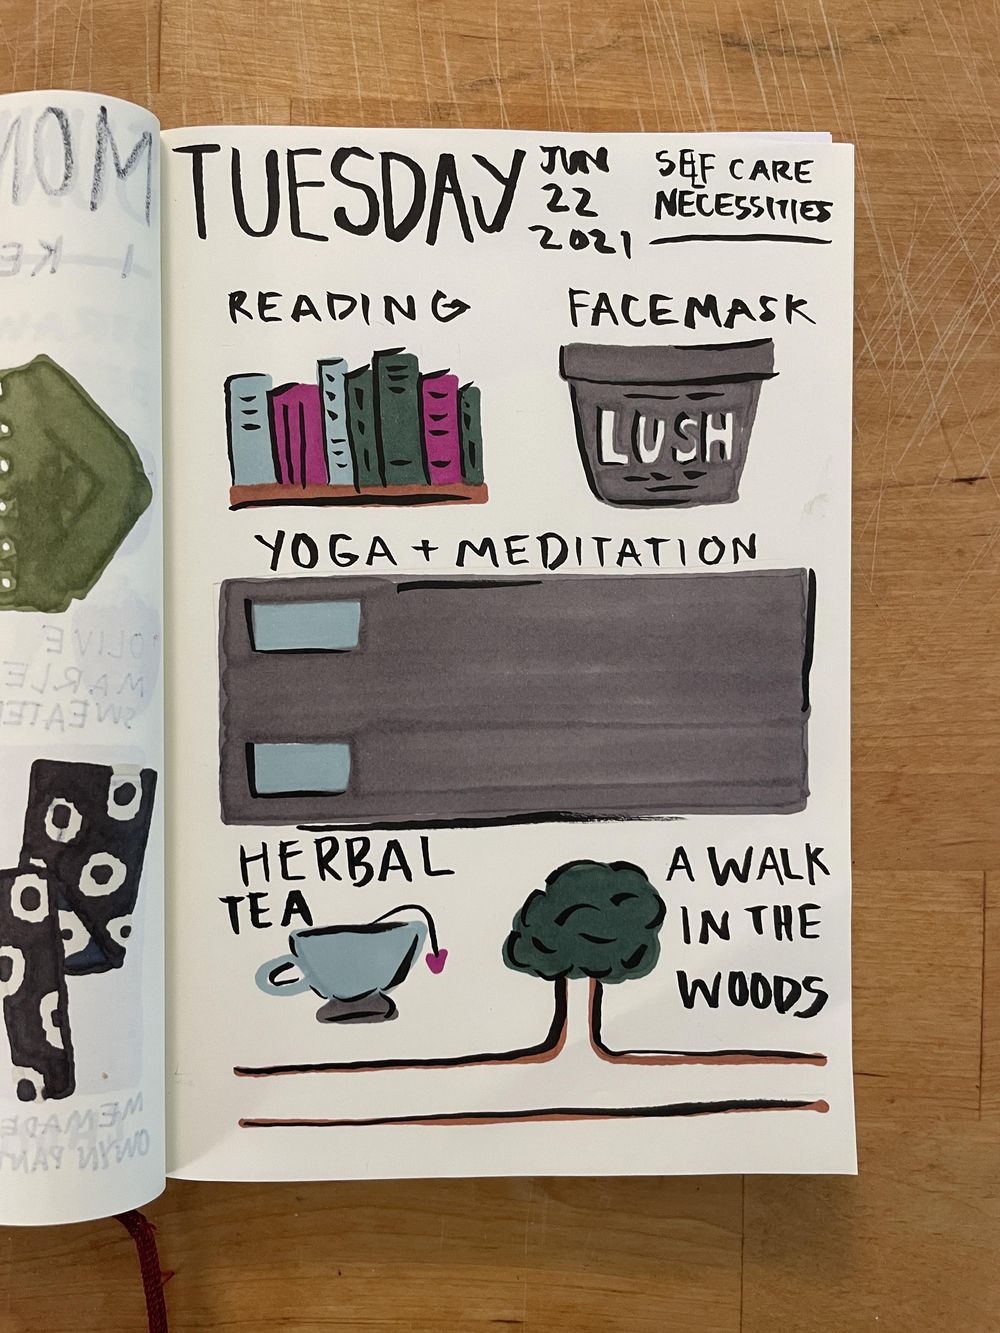 TUESDAY
JUN
22
2021
SELF CARE
NECESSITIES
READING
FACEMASK
LUSH
YOGA + MEDITATION
HERBAL
TEA
A WALK
IN THE
WOODS
MON
I KE
OLIVE
MARLE
SWEATE
MEMADE
OWYN PAN